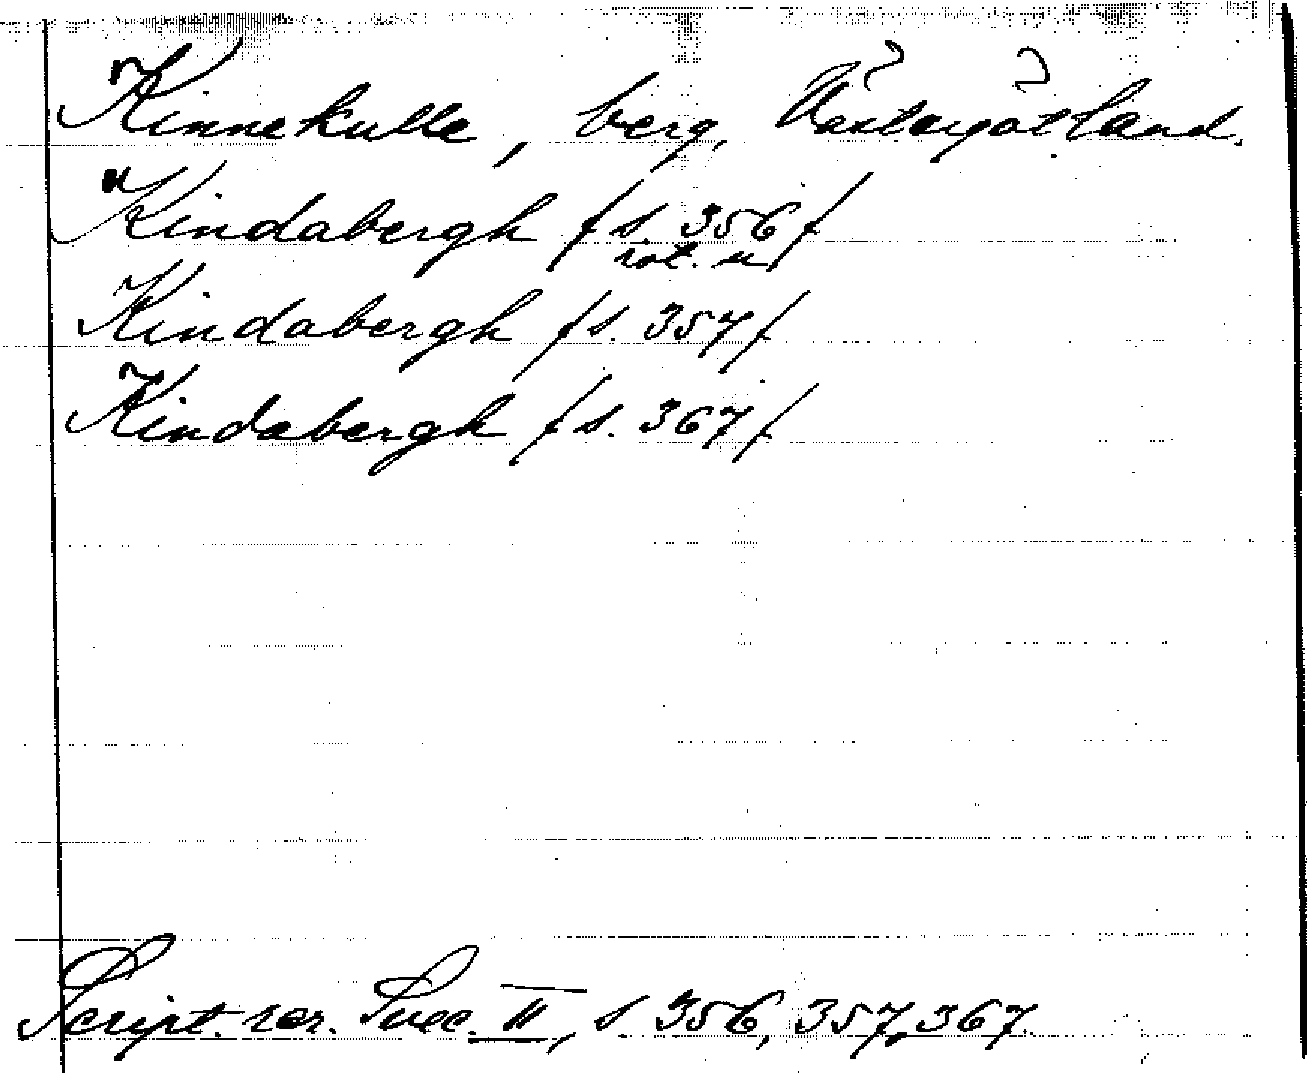 Kinnekulle, berg, Västergötland.
Kindabergh /s. 356/
not. u
Kindabergh /s. 357/
Kindabergh /s. 367/
Script. rer. Svec. II, s. 356, 357, 367.